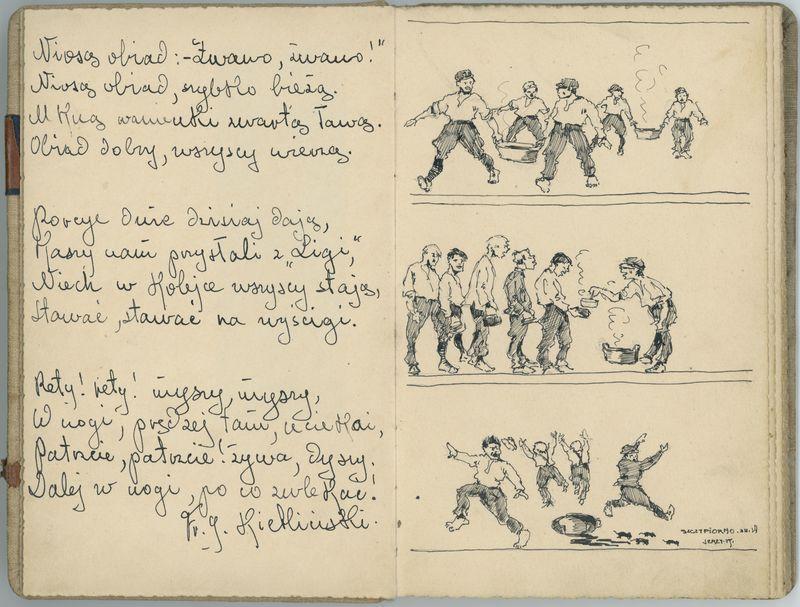 Niosą obiad:-Żwawo, żwawo!"
Niosą obiad, szybko bieżą.
zwartą ławą.
Obiad dobry, wszyscy wierzą.
Porcye duże dzisiaj dają,
Kaszy nam przysłali z "Ligi",
Niech w kolejce wszyscy stają,
Stawać, stawać na wyścigi.
Rety! rety! myszy, myszy,
W nogi, prędzej tam, uciekai,
Patrzcie, patrzcie! żywa, dyszy.
Dalej w nogi, po co zwlekac!
SZCZYPIORNO